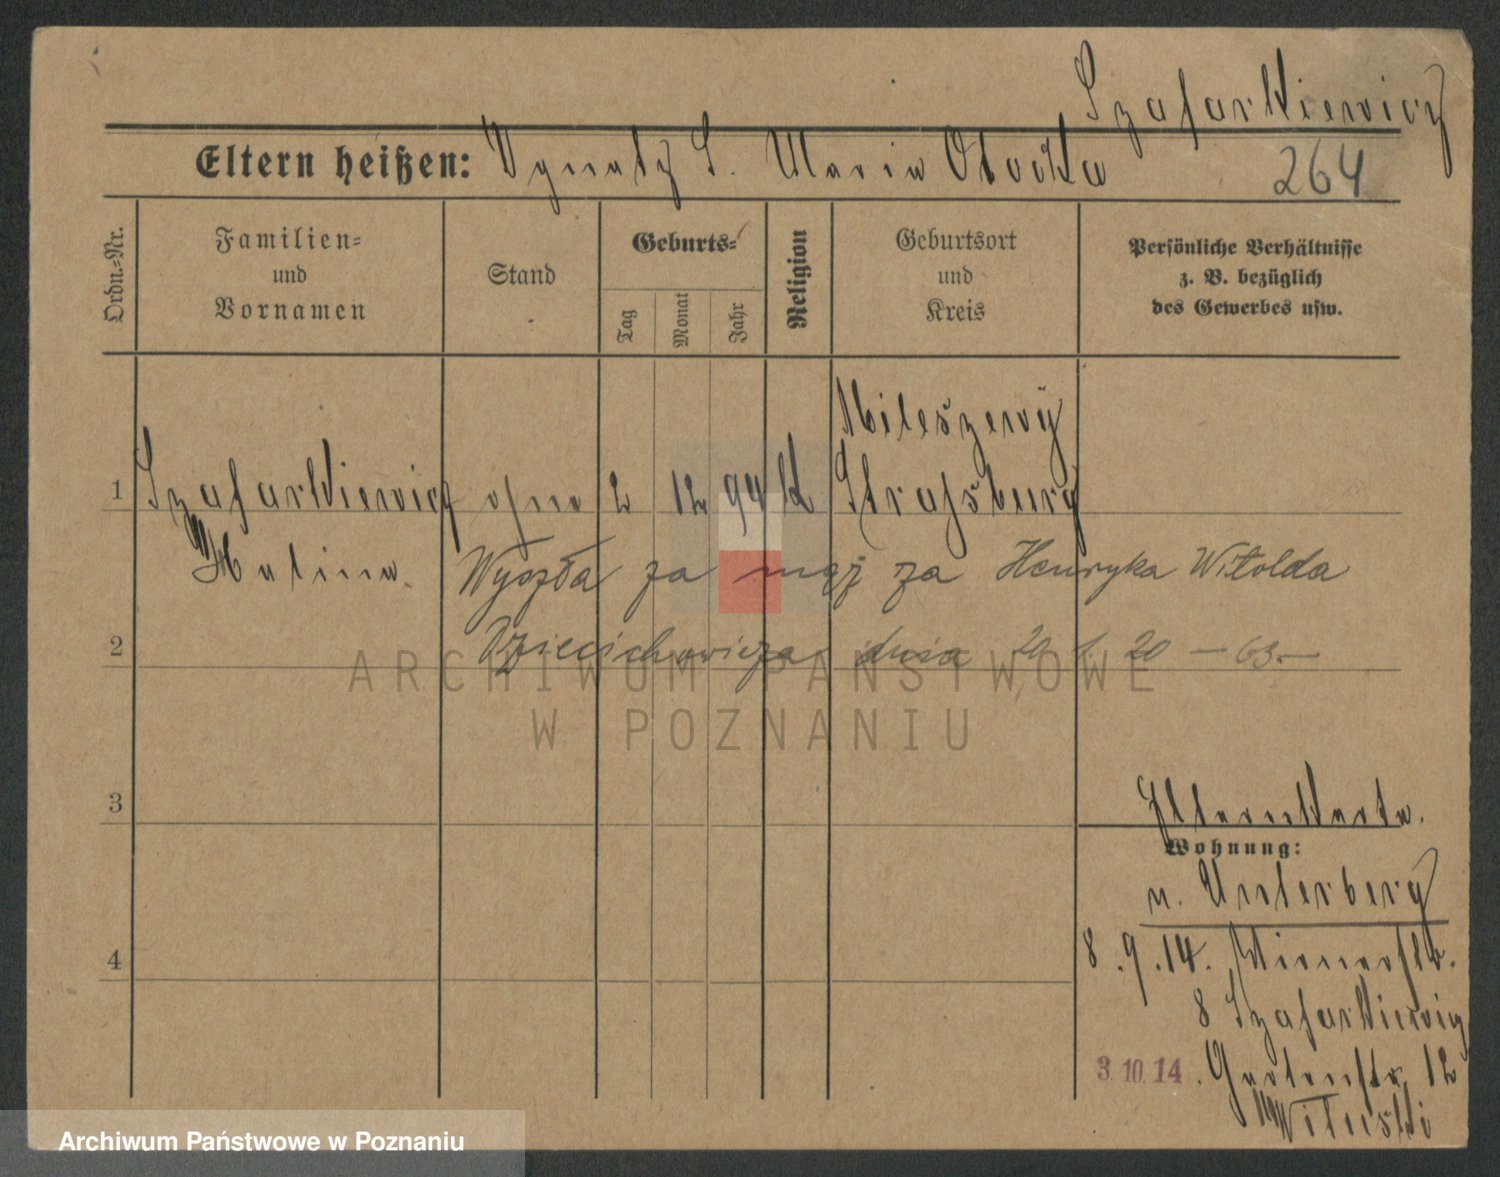 Szafarkiewicz
Eltern heißen: Ignatz S. Maria Otocka
264
Ordn.-Nr.
Familien- und Vornamen
Stand
Geburts-
Tag
Monat
Jahr
Religion
Geburtsort und Kreis
Persönliche Verhältnisse
z. B. bezüglich
des Gewerbes usw.
Mileszewy
1 Szafarkiewicz ohne 2 12 94 K Strasburg
Halina.
Wyszła za mąż za Henryka Witolda
2 Dziecichowicza dnia 20 1. 20 — 63.—
ARCHIWUM PAŃSTWOWE
W POZNANIU
3
Elternkarte.
Wohnung:
n. Unterberg
4
8.9.14. Wienerstr.
8 Szafarkiewicz
3.10.14. Gartenstr. 12
Wituski
Archiwum Państwowe w Poznaniu